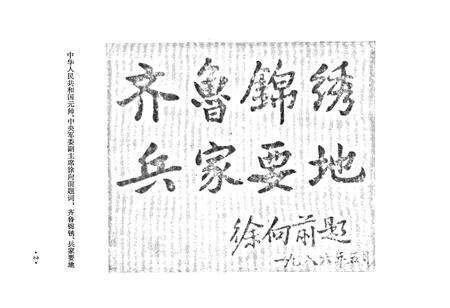 齐鲁锦绣
兵家要地
徐向前题
一九八六年五月
中华人民共和国元帅、中央军委副主席徐向前题词：齐鲁锦绣，兵家要地